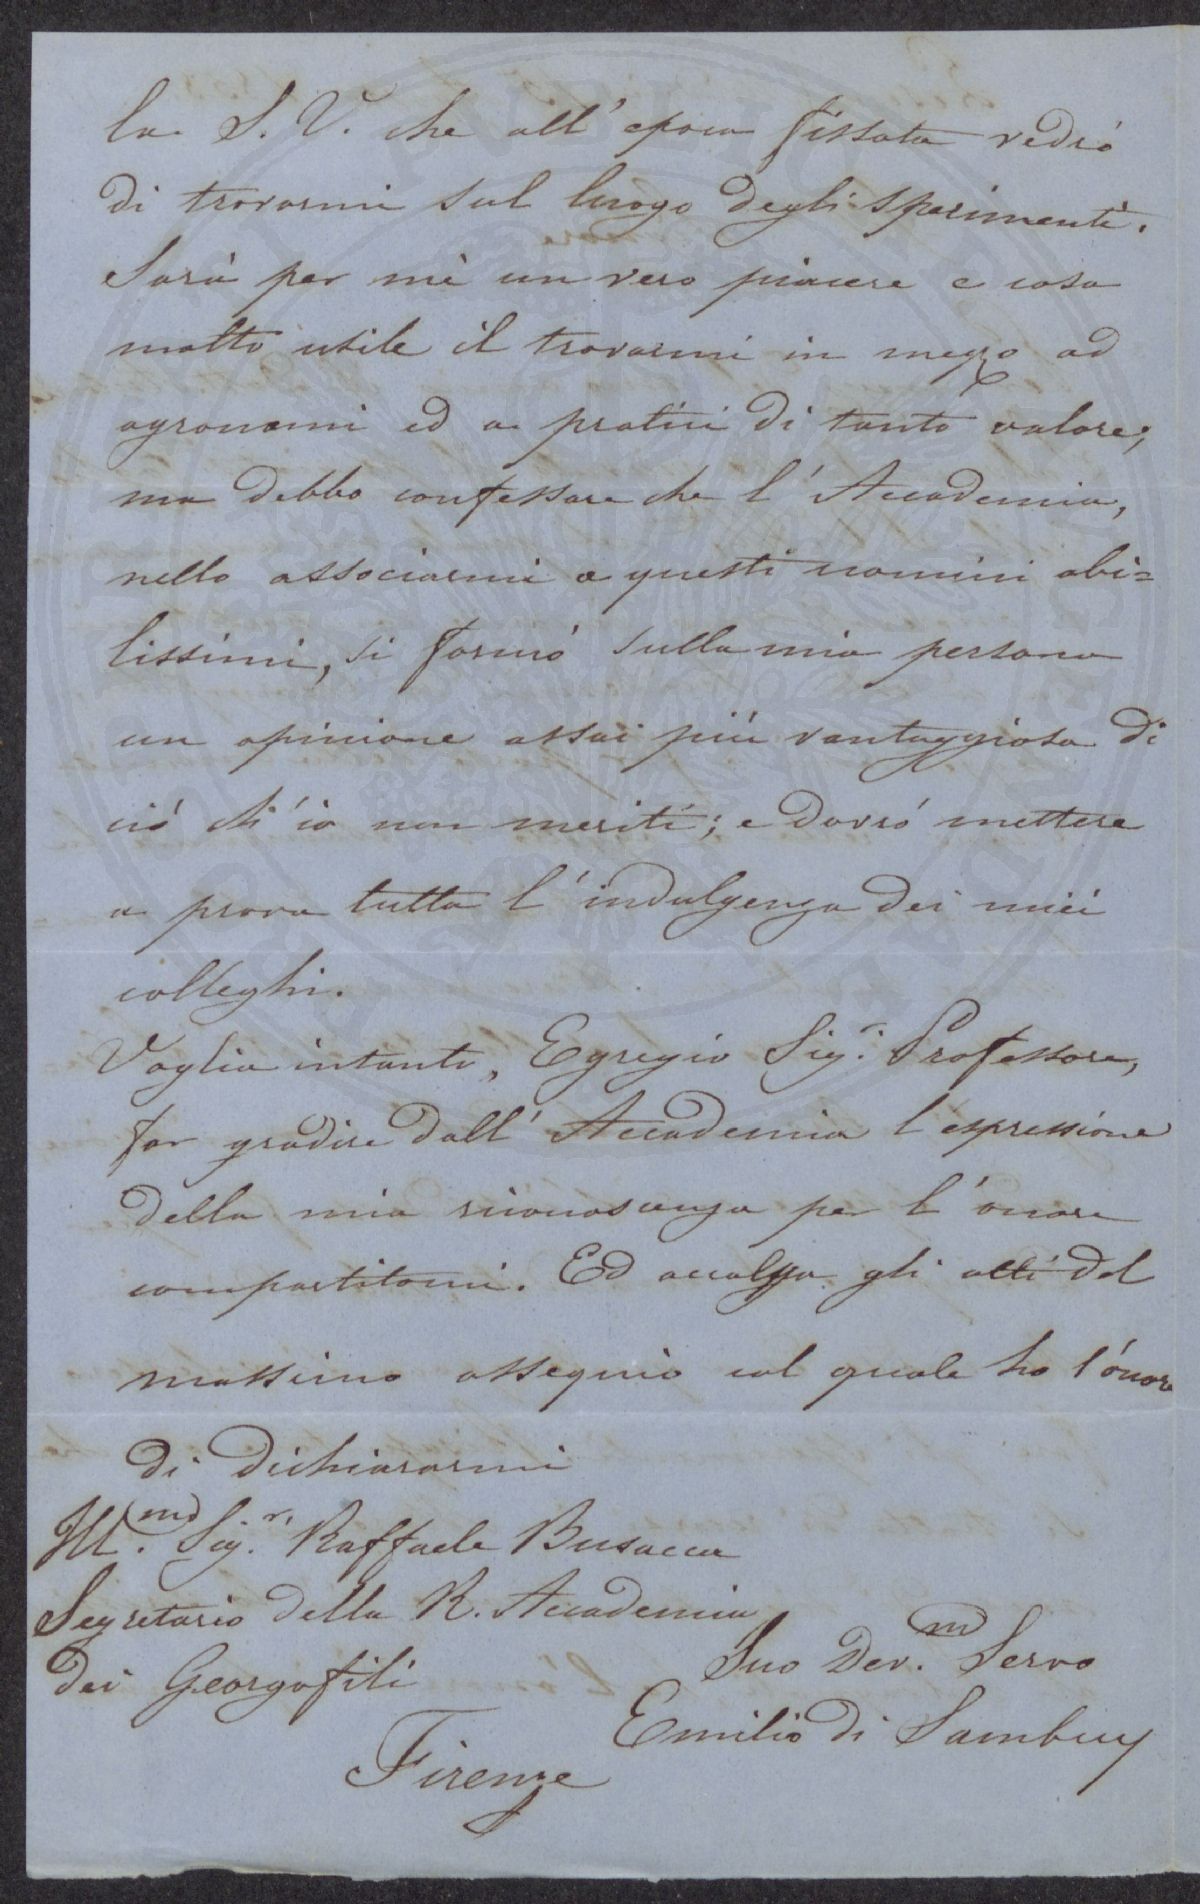 la S. V. che all' epoca fissata vedrò
di trovarmi sul luogo degli sperimenti.
Sarà per mè un vero piacere e cosa
molto utile il trovarmi in mezzo ad
agronomi ed a pratici di tanto valore;
ma debbo confessare che l' Accademia,
nello associarmi a questi uomini abi=
lissimi, si formò sulla mia persona
un opinione assai più vantaggiosa di
ciò ch' io non meriti; e dovrò mettere
a prova tutta l' indulgenza dei miei
colleghi.
Voglia intanto, Egregio Sig.r Professore,
far gradire dall' Accademia l'espressione
della mia riconoscenza per l' onore
compartitomi. Ed accolga gli atti del
massimo ossequio col quale ho l'onore
di dichiararmi
Ill.mo Sig.r Raffaele Busacca
Segretario della R. Accademia
dei Georgofili
Firenze
Suo Dev.mo Servo
Emilio di Sambuy